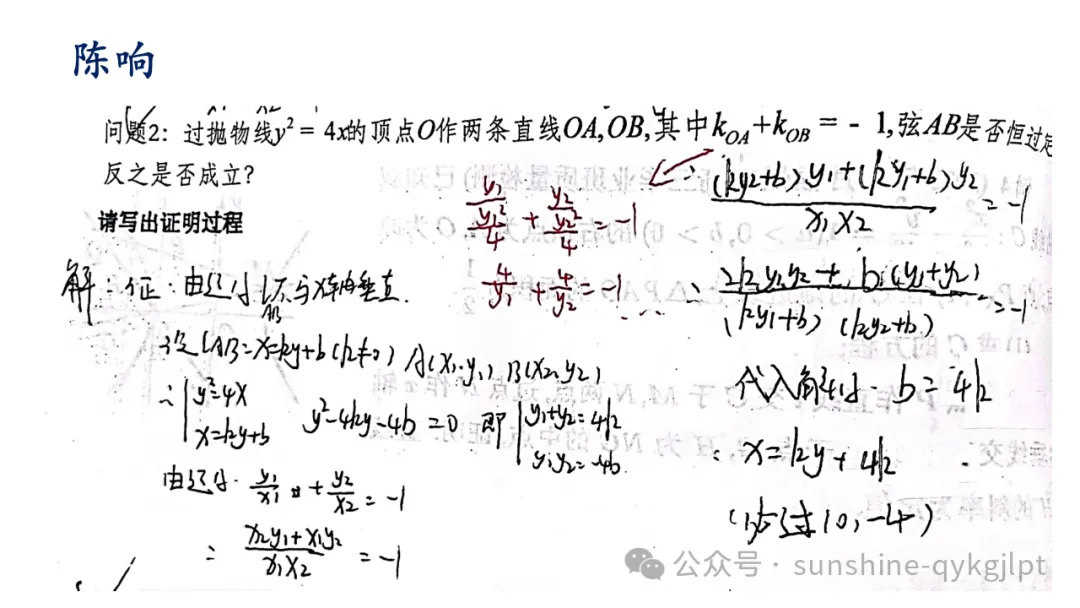 陈响
问题2：过抛物线y² = 4x的顶点O作两条直线OA,OB,其中k_OA+k_OB = - 1,弦AB是否恒过定
反之是否成立？
请写出证明过程
解：证：由题得 l_AB不与x轴垂直.
设l_AB=x=ky+b(k≠0) A(x₁,y₁) B(x₂,y₂)
∴ { y²=4x
x=ky+b
y²-4ky-4b=0 即 { y₁+y₂=4k
y₁y₂=-4b
由题得. y₁/x₁ + y₂/x₂ = -1
= (x₂y₁+x₁y₂)/(x₁x₂) = -1
y₁/(y₁²/4) + y₂/(y₂²/4) = -1
4/y₁ + 4/y₂ = -1
∴ ((ky₂+b)y₁+(ky₁+b)y₂)/(x₁x₂) = -1
∴ (2ky₁y₂+b(y₁+y₂))/((ky₁+b)(ky₂+b)) = -1
代入解得. b=4k
∴ x=ky+4k
恒过(0,-4)
公众号 · sunshine-qykgjlpt